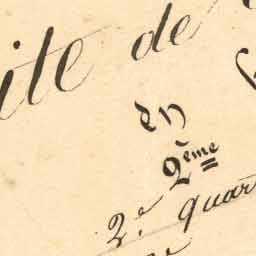 ite de
en
2ème
2e quar